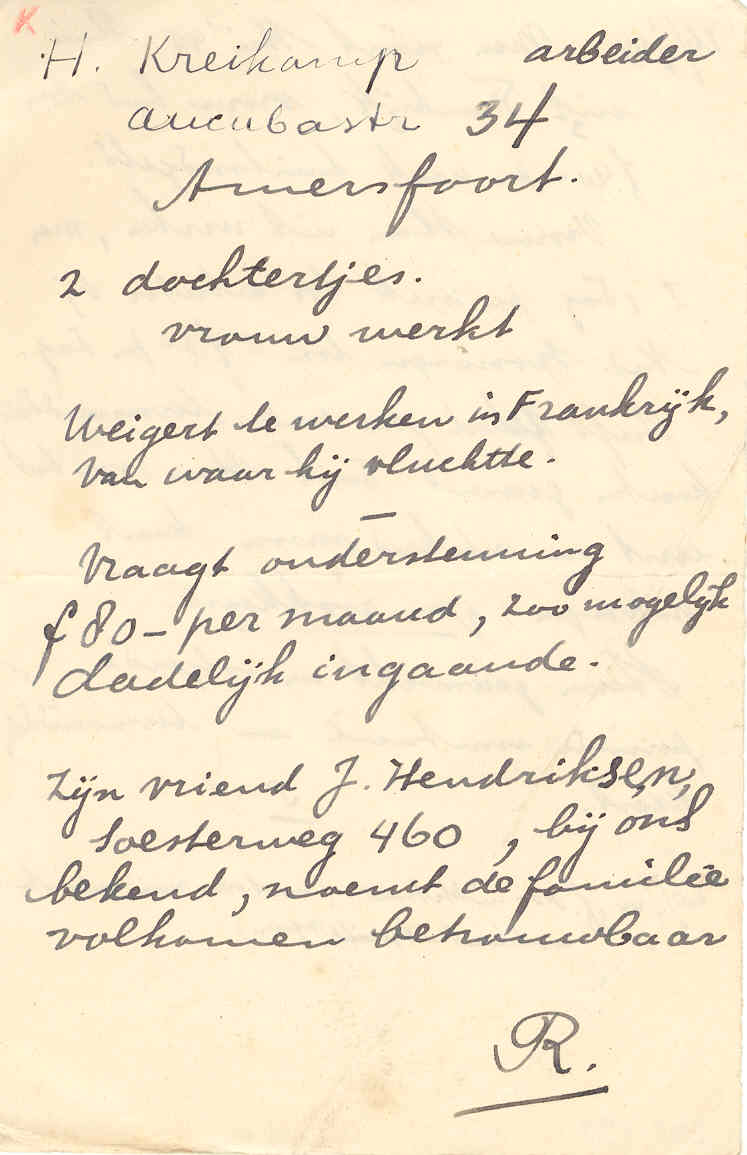 K
H. Kreikamp arbeider
Aucubastr 34
Amersfoort.
2 dochtertjes.
vrouw werkt
Weigert te werken in Frankrijk,
van waar hij vluchtte.
—
Vraagt ondersteuning
f 80 – per maand, zoo mogelijk
dadelijk ingaande.
Zijn vriend J. Hendriksen,
Soesterweg 460, bij ons
bekend, noemt de familie
volkomen betrouwbaar
R.